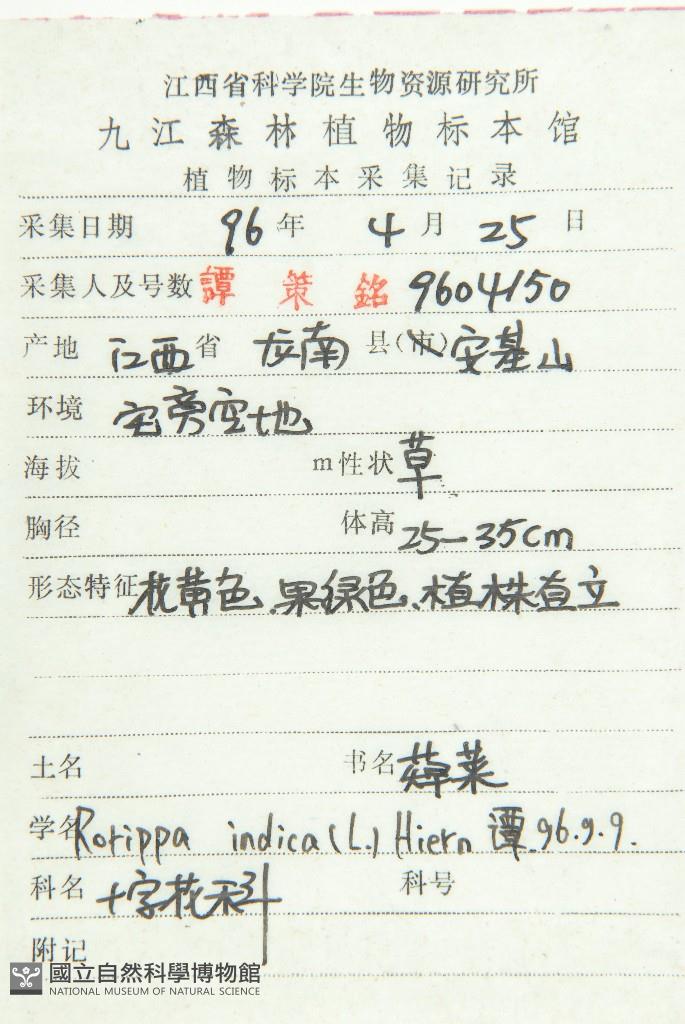 江西省科学院生物资源研究所
九江森林植物标本馆
植物标本采集记录
采集日期 96年 4月 25日
采集人及号数 譚策銘 9604150
产地 江西省 龙南县(市)安基山
环境 宅旁空地
海拔 m性状 草
胸径 体高 25-35cm
形态特征 花黄色、果绿色、植株直立
土名 书名 蔊菜
学名 Rorippa indica (L.) Hiern 譚.96.9.9.
科名 十字花科 科号
附记
國立自然科學博物館
NATIONAL MUSEUM OF NATURAL SCIENCE